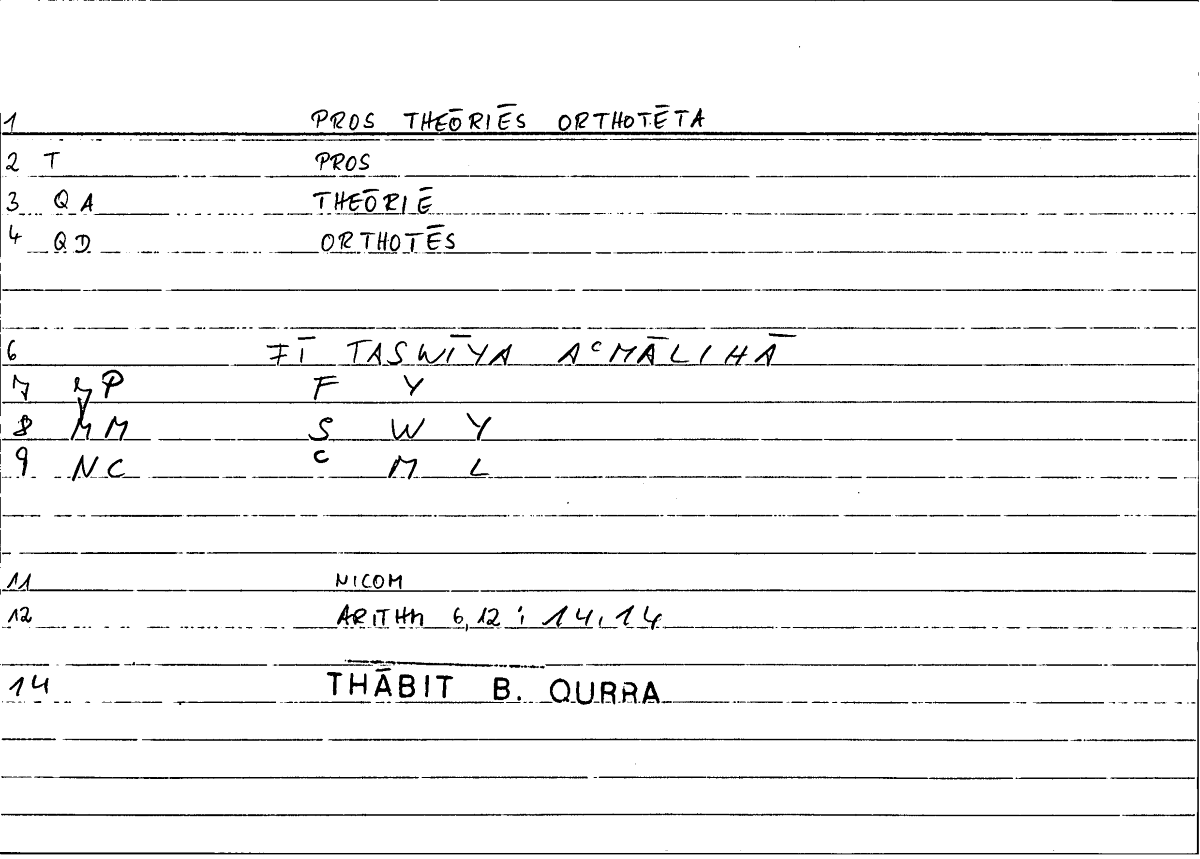 1 PROS THEŌRIĒS ORTHOTĒTA
2 T PROS
3 QA THEŌRIĒ
4 QD ORTHOTĒS
6 FĪ TASWĪYA AᶜMĀLIHĀ
7 P F Y
8 MM S W Y
9 NC ᶜ M L
11 NICOM
12 ARITHM 6,12 ; 14,14
14 THĀBIT B. QURRA